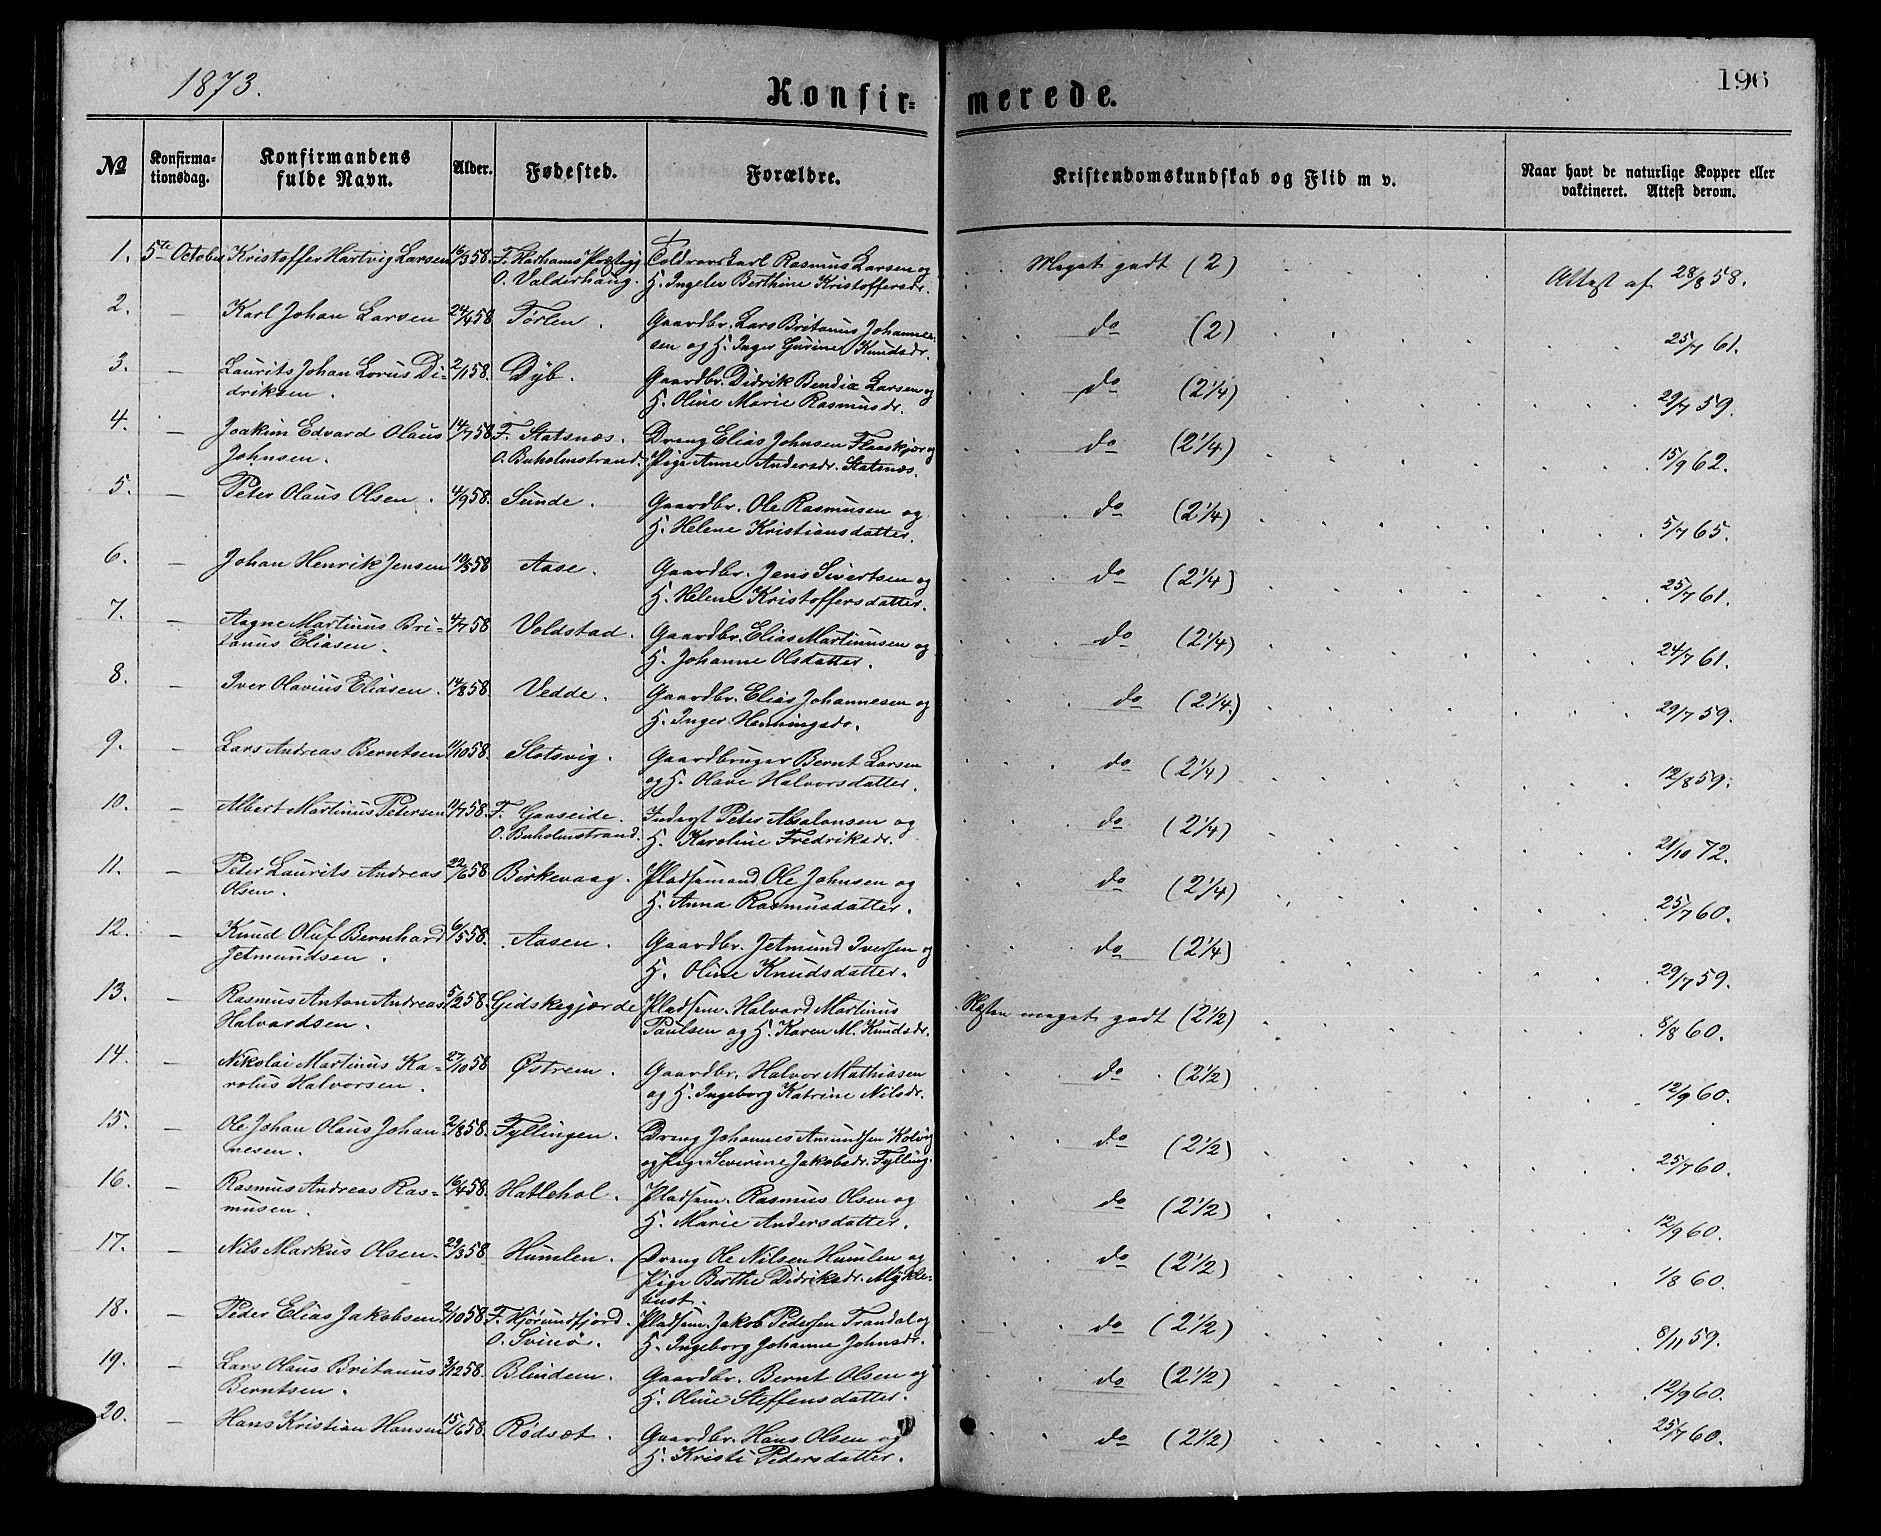 1873.
Konfir=
merede.
196
No
Konfirma=
tionsdag.
Konfirmandens
fulde Navn.
Alder.
Fødested.
Forældre.
Kristendomskundskab og Flid m v.
Naar havt de naturlige Kopper eller
vaktineret. Attest derom.
1. 5te October Kristoffer Hartvig Larsen 16/3 58. F. Harhams Præstegj Toldroerskarl Rasmus Larsen og Meget godt (2) Attest af 28/8 58.
O. Valderhaug. H. Ingelev Berthine Kristoffersdr.
2. — Karl Johan Larsen 24/4 58 Tørlen. Gaardbr. Lars Britanus Johannes= do (2) 25/7 61.
sen og H. Inger Gurine Knudsdr.
3. — Laurits Johan Lorus Di= 2/1 58. Dyb. Gaardbr. Didrik Bendix Larsen og do (2 1/4) 29/7 59.
driksen. H. Oline Marie Rasmusdr.
4. — Joakim Edvard Olaus 14/7 58 F. Statsnæs. Dreng Elias Johnsen Flaaskjær og do (2 1/4) 15/9 62.
Johnsen. O. Buholmstrand. Pige Anne Andersdr. Statsnæs.
5. — Peter Olaus Olsen. 4/9 58. Sunde. Gaardbr. Ole Rasmusen og do (2 1/4) 5/7 65.
H. Helene Kristiansdatter.
6. — Johan Henrik Jensen 19/3 58 Aase. Gaardbr. Jens Sivertsen og do (2 1/4) 25/7 61.
H. Helene Kristoffersdatter.
7. — Aagne Martinus Bri= 4/7 58 Voldstad. Gaardbr. Elias Martinusen og do (2 1/4) 24/7 61.
tanus Eliasen. H. Johanne Olsdatter.
8. — Iver Olavius Eliasen. 14/8 58. Vedde. Gaardbr. Elias Johannesen og do (2 1/4.) 29/7 59.
H. Inger Henningsdr.
9. — Lars Andreas Berntsen 11/10 58. Slotsvig. Gaardbruger Bernt Larsen do (2 1/4) 12/8 59.
og H. Olave Halvorsdatter.
10. — Albert Martinus Petersen 11/7 58. F. Gaaseide. Inderst Peter Absalonsen og do (2 1/4) 21/10 72.
O. Buholmstrand. H. Karoline Fredriksdr.
11. — Peter Laurits Andreas 22/6 58 Birkevaag. Pladsemand Ole Johnsen og do (2 1/4) 25/7 60.
Olsen. H. Anna Rasmusdatter.
12. — Knud Oluf Bernhard 6/5 58. Aasen. Gaardbr. Jetmund Iversen og do (2 1/4) 29/7 59.
Jetmundsen. H. Oline Knudsdatter.
13. — Rasmus Anton Andreas 5/2 58. Gidskegjærde Pladsem. Halvard Martinus Næsten meget godt (2 1/2) 8/8 60.
Halvardsen. Paulsen og H. Karen M. Knudsdr.
14. — Nikolai Martinus Ka= 27/10 58 Østrem. Gaardbr. Halvor Mathiasen do (2 1/2) 12/9 60.
rolus Halvorsen. og H. Ingeborg Katrine Nilsdr.
15. — Ole Johan Olaus Johan= 2/8 58. Fyllingen. Dreng Johannes Amundsen Kolvig do (2 1/2) 25/7 60.
nesen. og Pige Severine Jakobsdr. Fylling.
16. — Rasmus Andreas Ras= 16/4 58. Hatlehol. Pladsem. Rasmus Olsen og do (2 1/2) 12/9 60.
musen. H. Marie Andersdatter.
17. — Nils Markus Olsen. 29/3 58 Humlen. Dreng Ole Nilsen Humlen og do (2 1/2) 1/8 60.
Pige Berthe Didriksdr. Mykle=
bust.
18. — Peder Elias Jakobsen 2/10 58 F. Hjørundfjord. Pladsem. Jakob Pedersen Trandal og do (2 1/2) 8/11 59.
O. Svinø. H. Ingeborg Johanne Johnsdr.
19. — Lars Olaus Britanus 3/12 58. Blindem. Gaardbr. Bernt Olsen og do (2 1/2) 12/9 60.
Berntsen. H. Oline Steffensdatter.
20. — Hans Kristian Hansen 15/6 58. Rødsæt. Gaardbr. Hans Olsen og do (2 1/2) 25/7 60.
H. Kristi Pedersdatter.